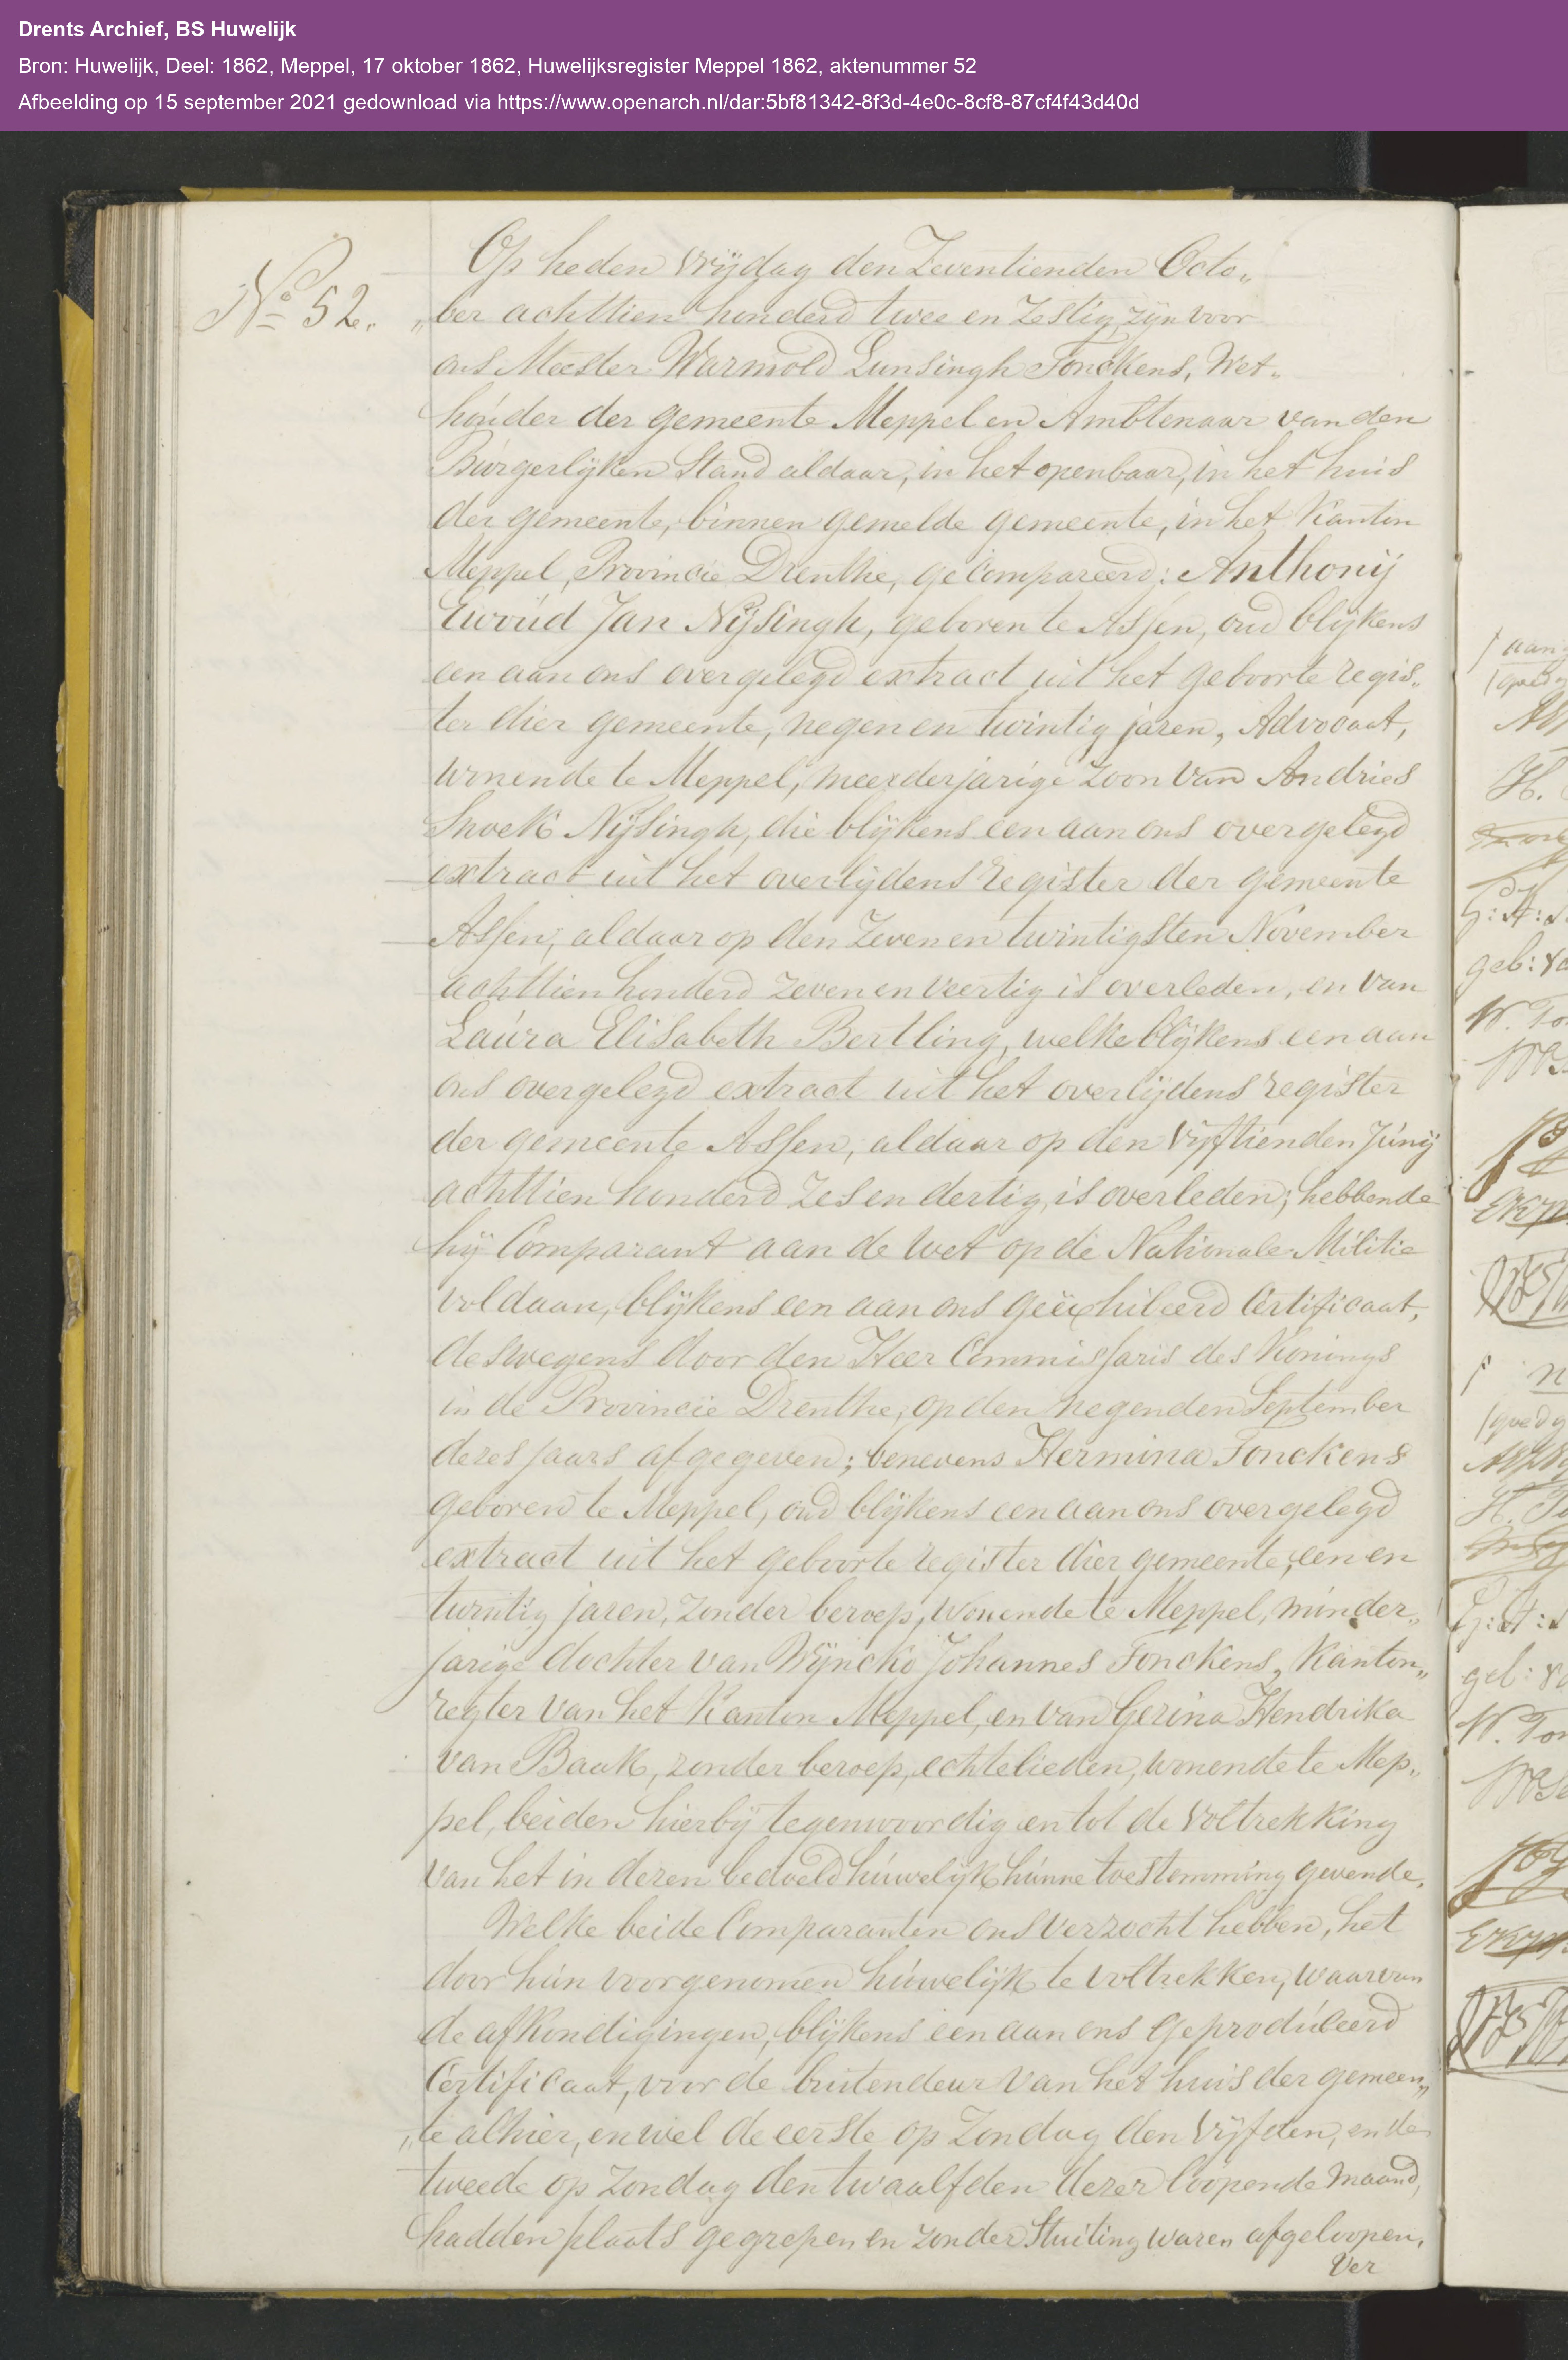 Drents Archief, BS Huwelijk
Bron: Huwelijk, Deel: 1862, Meppel, 17 oktober 1862, Huwelijksregister Meppel 1862, aktenummer 52
Afbeelding op 15 september 2021 gedownload via https://www.openarch.nl/dar:5bf81342-8f3d-4e0c-8cf8-87cf4f43d40d
No 52.
Op heden Vrijdag den Zeventienden Octo„
„ber achttien honderd twee en Zestig, zijn voor
ons Meester Warmold Lunsingh Tonckens, Wet„
houder der gemeente Meppel en Ambtenaar van den
Burgerlijken Stand aldaar, in het openbaar, in het huis
der gemeente, binnen gemelde gemeente, in het Kanton
Meppel, Provincie Drenthe, gecompareerd: Anthonij
Ewoud Jan Nijsingh, geboren te Assen, oud blijkens
een aan ons overgelegd extract uit het geboorte regis„
ter dier gemeente, negen en twintig jaren, Advocaat,
wonende te Meppel, meerderjarige zoon van Andries
Snoek Nijsingh, die blijkens een aan ons overgelegd
extract uit het overlijdens register der gemeente
Assen, aldaar op den Zeven en twintigsten November
achttien honderd zeven en veertig is overleden, en van
Laura Elisabeth Bertling, welke blijkens een aan
ons overgelegd extract uit het overlijdens register
der gemeente Assen, aldaar op den Vijftienden Junij
achttien honderd Zes en dertig, is overleden; hebbende
hij Comparant aan de wet op de Nationale Militie
voldaan, blijkens een aan ons geëxhibeerd Certificaat,
deswegens door den Heer Commissaris des Konings
in de Provincie Drenthe, op den negenden September
dezes jaars afgegeven; benevens Hermina Tonckens
geboren te Meppel, oud blijkens een aan ons overgelegd
extract uit het geboorte register dier gemeente, een en
twintig jaren, zonder beroep, wonende te Meppel, minder„
jarige dochter van Wijncko Johannes Tonckens, Kanton„
regter van het Kanton Meppel, en van Gerina Hendrika
van Baak, zonder beroep, echtelieden, wonende te Mep„
pel, beiden hierbij tegenwoordig en tot de Voltrekking
van het in dezen bedoeld huwelijk hunne toestemming gevende.
Welke beide Comparanten ons verzocht hebben, het
door hun voorgenomen huwelijk te voltrekken, waarvan
de afkondigingen, blijkens een aan ons geproduceerd
Certificaat, voor de buitendeur van het huis der gemeen„
„te alhier, en wel de eerste op Zondag den Vijfden, en de
tweede op Zondag den twaalfden dezer loopende maand,
hadden plaats gegrepen en zonder Stuiting waren afgeloopen,
Ver